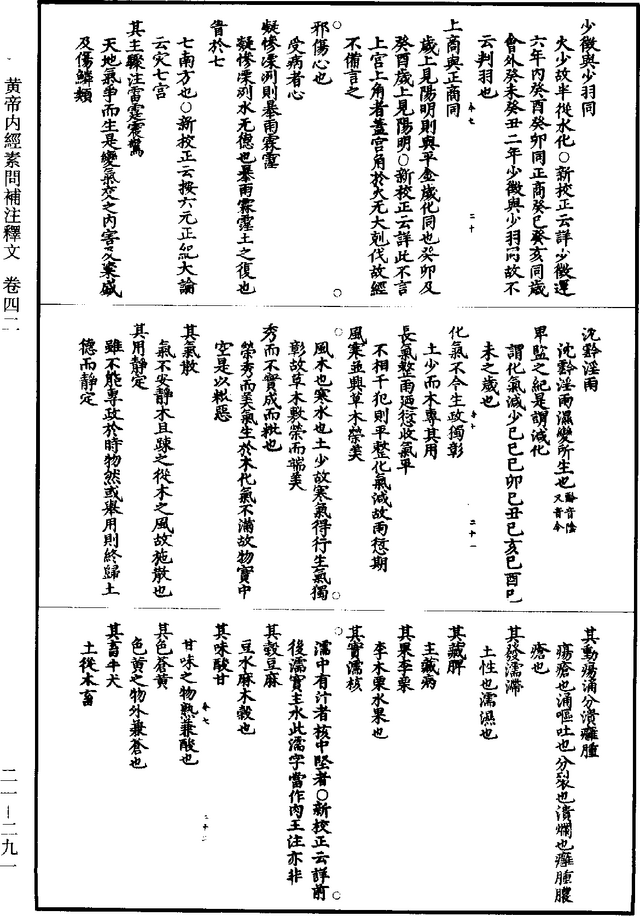 少徵與少羽同
火少故半從水化○新校正云詳少徵運
六年內癸酉癸卯同正商癸巳癸亥同歲
會外癸未癸丑二年少徵與少羽同故不
云判羽也
上商與正商同
歲上見陽明則與平金歲化同也癸卯及
癸酉歲上見陽明○新校正云詳此不言
上宮上角者蓋宮角於火无大剋伐故經
不備言之
邪傷心也
受病者心
凝慘凓冽則暴雨霖霪
凝慘凓冽水无德也暴雨霖霪土之復也
眚於七
七南方也○新校正云按六元正紀大論
云灾七宮
其主驟注雷霆震驚
天地氣爭而生是變氣交之內害及粢盛
及傷鱗類
沈黔淫雨
沈黔淫雨濕變所生也黔音陰又音今
卑監之紀是謂減化
謂化氣減少己巳己卯己丑己亥己酉己
未之歲也
化氣不令生政獨彰
土少而木專其用
長氣整雨廼愆收氣平
不相干犯則平整化氣減故雨愆期
風寒並興草木榮美
風木也寒水也土少故寒氣得行生氣獨
彰故草木敷榮而端美
秀而不實成而粃也
榮秀而美氣生於木化氣不滿故物實中
空是以粃惡
其氣散
氣不安靜木且踈之從木之風故施散也
其用靜定
雖不能專政於時物然或舉用則終歸土
德而靜定
其動瘍涌分潰癰腫
瘍瘡也涌嘔吐也分裂也潰爛也癰腫膿
瘡也
其發濡滯
土性也濡濕也
其藏脾
主藏病
其果李栗
李木栗水果也
其實濡核
濡中有汁者核中堅者○新校正云詳前
後濡實主水此濡字當作肉王注亦非
其穀豆麻
豆水麻木穀也
其味酸甘
甘味之物熟兼酸也
其色蒼黃
色黃之物外兼蒼也
其畜牛犬
土從木畜
黃帝内經素問補注釋文 卷四二
二一—二九一